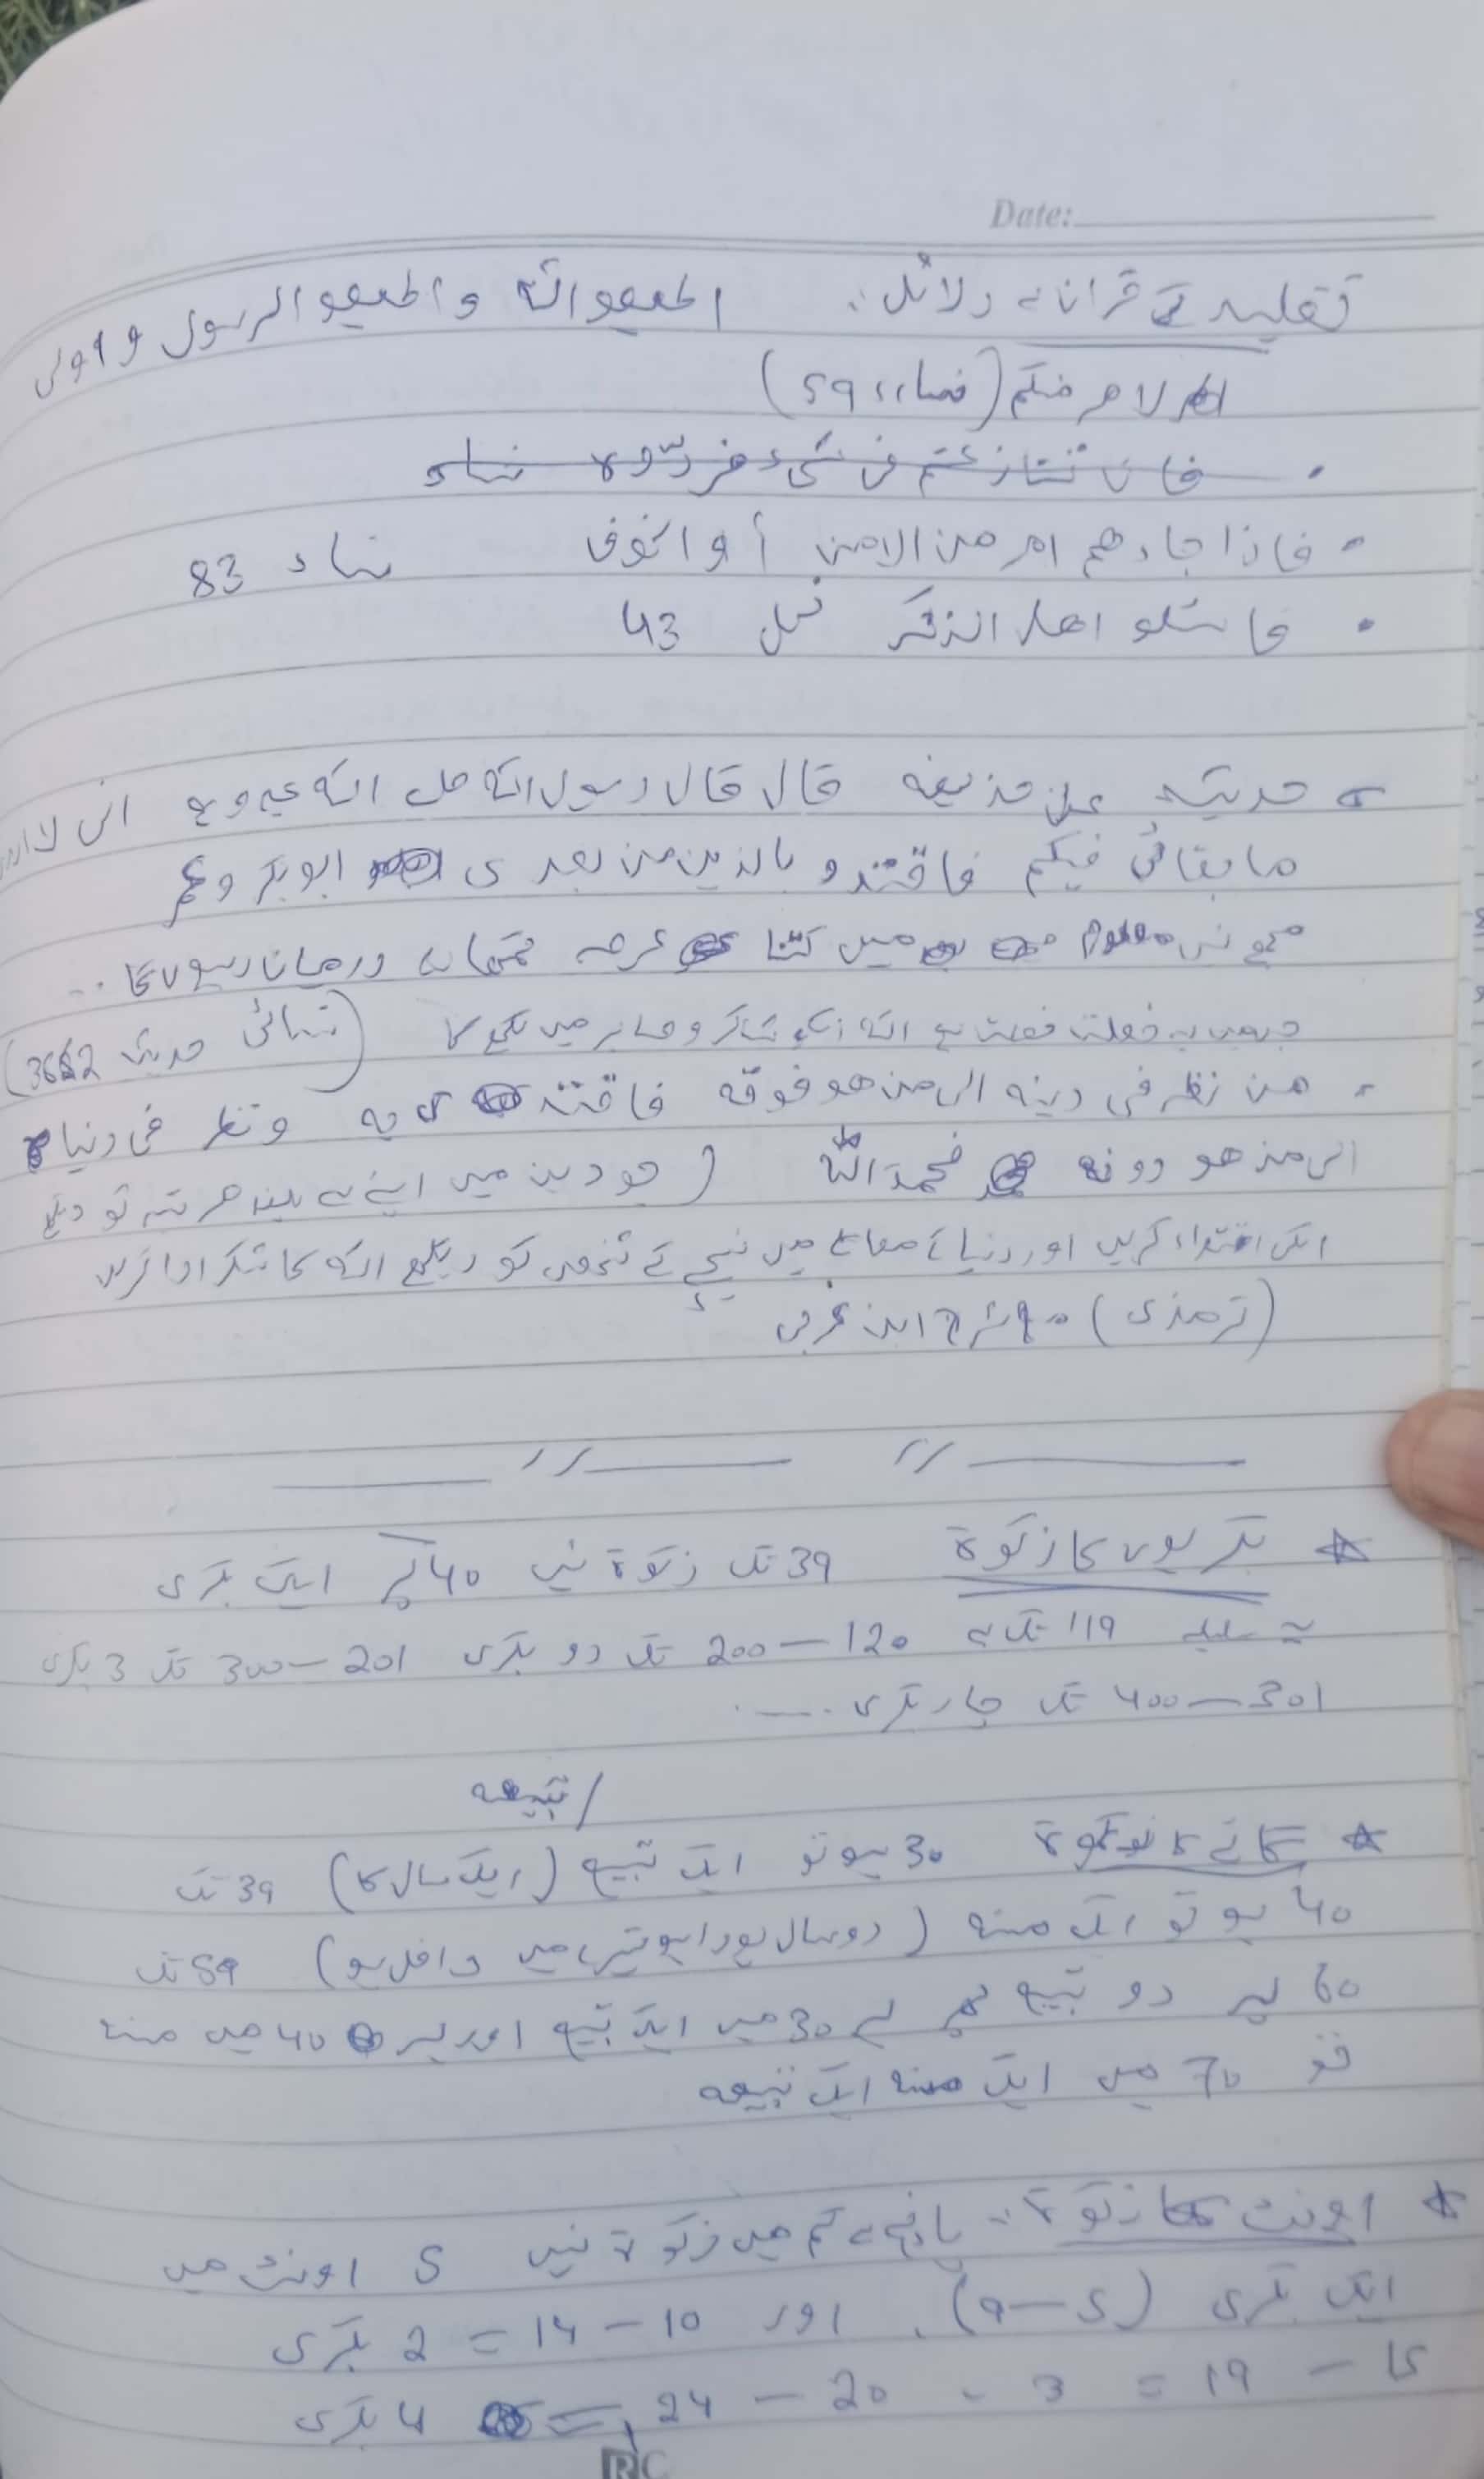 Date:
تقلید کے قرآن سے دلائل:. اطیعو اللہ واطیعو الرسول و اولی
الامر منکم (نساء، 59)
• فان تنازعتم فی شیء فردّوہ نساء
- فاذا جاءھم امر من الامن أو الخوف نساء 83
• فاسئلو اھل الذکر نحل 43
حدیث عن حذیفہ قال قال رسول اللہ صلی اللہ علیہ وسلم انی لا ادری
ما بقائی فیکم فاقتدو بالذین من بعدی ابو بکر و عمر
مجھے نہیں معلوم میں کتنا عرصہ تمھارے درمیان رہوں گا ...
جس میں یہ خصلت اللہ اسکو شاکر و صابر میں لکھے گا ( حدیث 3662)
- من نظر فی دینہ الی من ھو فوقہ فاقتدی بہ ونظر فی دنیاہ
الی من ھو دونہ فحمد اللہ (جو دین میں اپنے سے بلند مرتبہ کو دیکھے
اسکی اقتداء کریں اور دنیا کے معاملے میں نیچے کے شخص کو دیکھے اللہ کا شکر ادا کریں
(ترمذی) شرح ابن عربی
〃 〃
☆ بکریوں کا زکوۃ 39 تک زکوۃ نہیں 40 پر ایک بکری
یہ سلسلہ 119 تک ہے 120 – 200 تک دو بکری 201 – 300 تک 3 بکری
301 – 400 تک چار بکری ....
/ تبیعہ
☆ گائے کا زکوۃ 30 ہو تو ایک تبیع (ایک سال کا) 39 تک
40 ہو تو ایک مسنہ (دو سال پورا ہو تیسرے میں داخل ہو) 59 تک
60 پر دو تبیع ہر 30 میں ایک تبیع اور ہر 40 میں مسنہ
تو 70 میں ایک مسنہ ایک تبیعہ
☆ اونٹ کا زکوۃ:. پانچ سے کم میں زکوۃ نہیں 5 اونٹ میں
ایک بکری (5 – 9). اور 10 – 14 = 2 بکری
15 – 19 = 3 - 20 – 24 = 4 بکری
RC